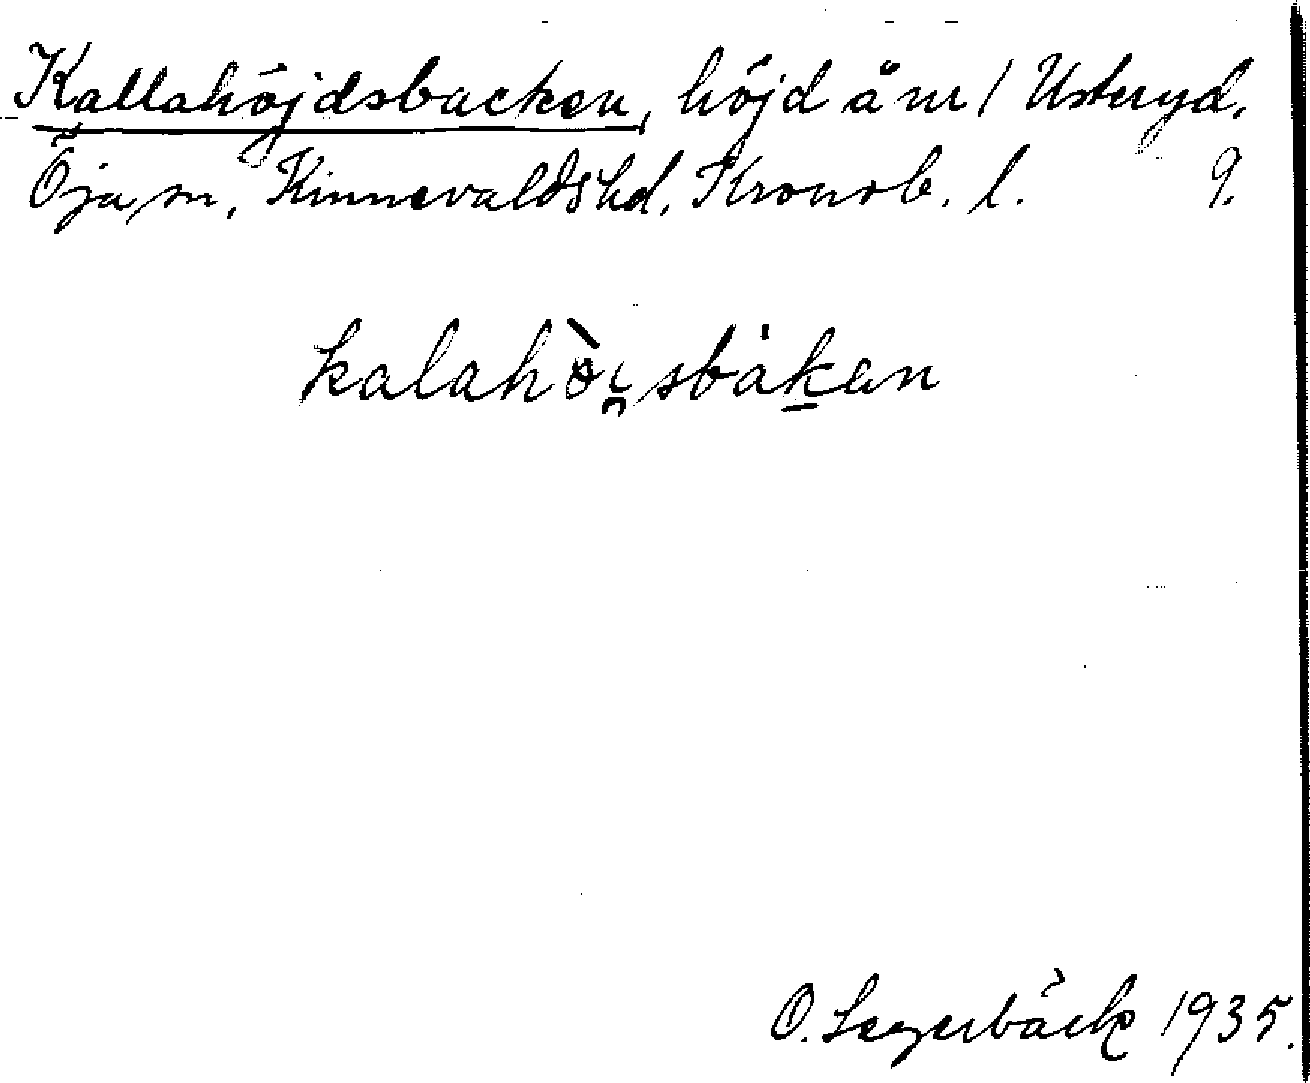 Kallahöjdsbacken, höjd å nr 1 Usteryd,
Öja sn, Kinnevalds hd, Kronob. l. 9.
kalahòi̯sbàkan
O. Segerbäck 1935.